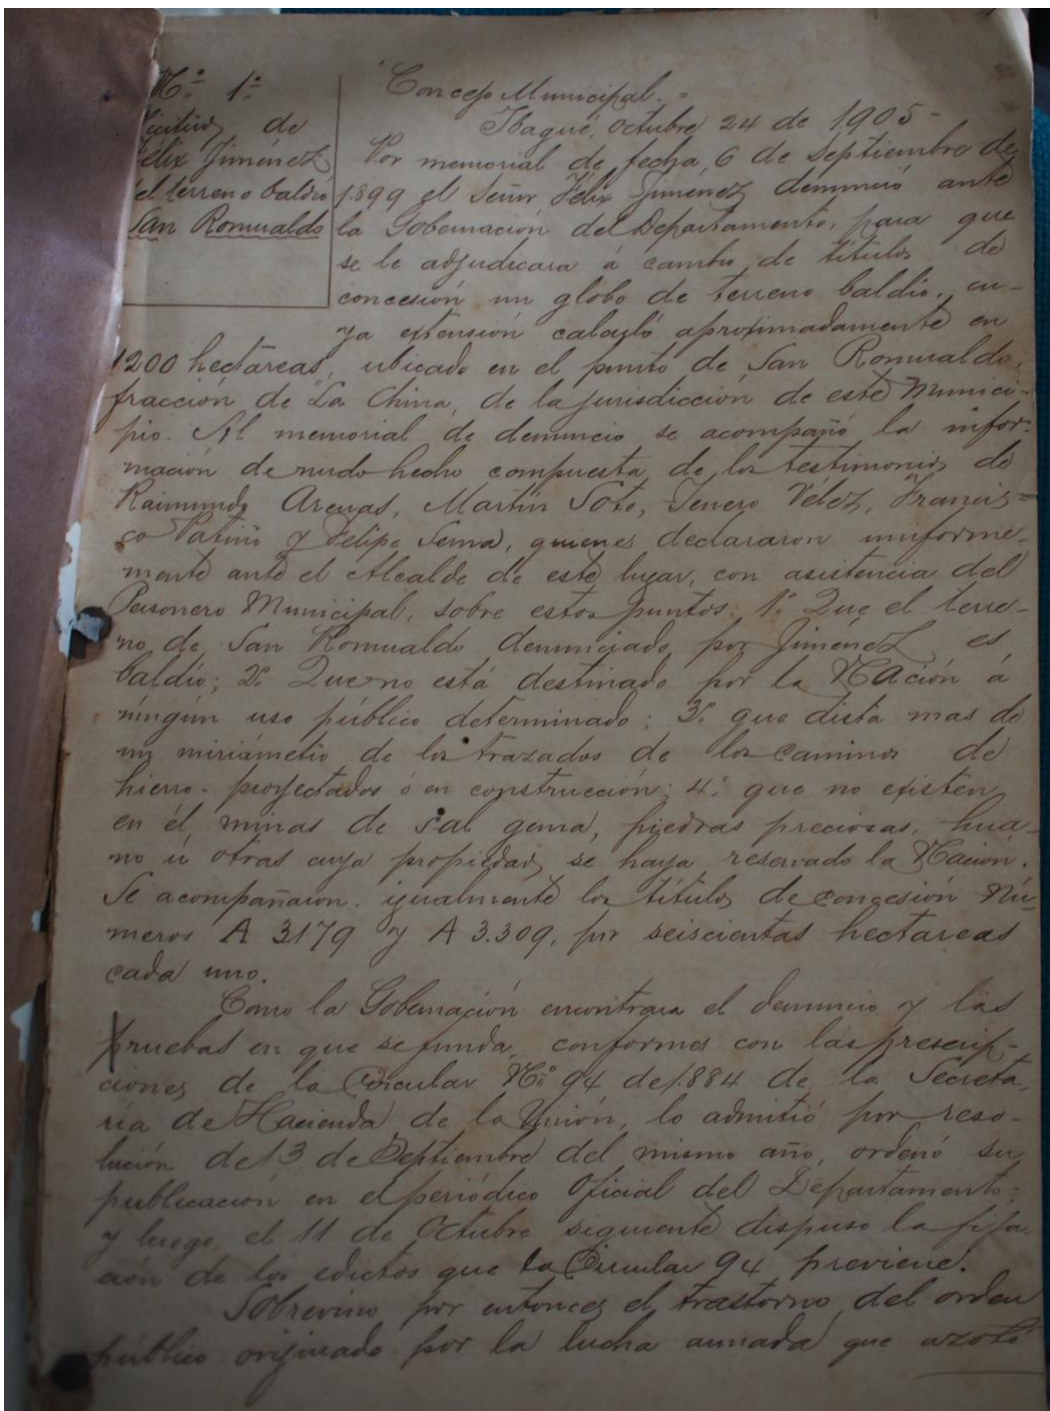 Nº 1º
de
Félix Jiménez
del terreno baldio
San Romualdo
Concejo Municipal. =
Ibagué, octubre 24 de 1905 -
Por memorial de fecha 6 de Septiembre de
1.899 el Señor Félix Jiménez denunció ante
la Gobernación del Departamento, para que
se le adjudicara á cambio de títulos de
concesión un globo de terreno baldio, cu-
ya extensión calculó aproximadamente en
1200 hectáreas, ubicado en el punto de San Romualdo,
fracción de La China, de la jurisdicción de este Munici-
pio. Al memorial de denuncio se acompañó la infor-
mación de nudo hecho compuesta de los testimonios de
Raimundo Arenas, Martín Soto, Vélez, Francis-
co Patiño y Felipe Serna, quienes declararon uniforme-
mente ante el Alcalde de este lugar, con asistencia del
Personero Municipal, sobre estos puntos: 1º Que el terre-
no de San Romualdo denunciado por Jiménez es
baldío; 2º Que no está destinado por la Nación á
ningún uso público determinado; 3º que dista mas de
un miriámetro de los trazados de los caminos de
hierro proyectados ó en construcción; 4º que no existen
en él minas de sal gema, piedras preciosas, hua-
no ú otras cuya propiedad se haya reservado la Nación.
Se acompañaron igualmente los títulos de concesión Nú-
meros A 3179 y A 3.309, por seiscientas hectareas
cada uno.
Como la Gobernación encontrara el denuncio y las
pruebas en que se funda, conformes con las prescrip-
ciones de la Circular Nº 94 de 1.884 de la Secreta-
ría de Hacienda de la Unión, lo admitió por reso-
lución de 13 de Septiembre del mismo año, ordenó su
publicación en el periódico Oficial del Departamento;
y luego, el 11 de Octubre siguiente dispuso la fija-
ción de los edictos que la Circular 94 previene.
Sobrevino por entonces el trastorno del orden
público originado por la lucha armada que azotó